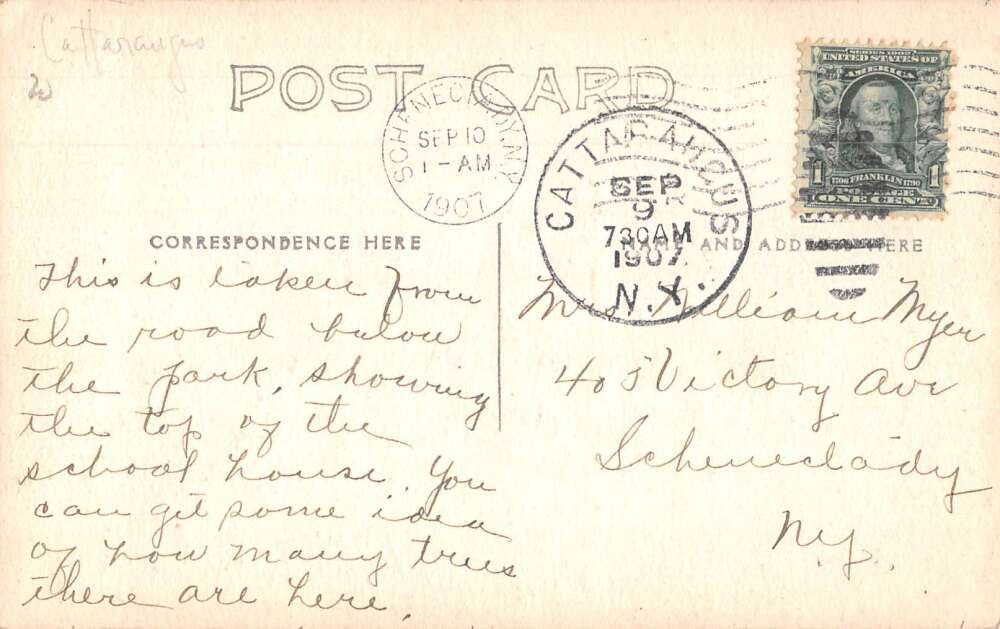 Cattaraugus
POST CARD
SCHENECTADY, N.Y.
SEP 10
1-AM
1907
CATTARAUGUS
SEP
9
730AM
1907
N.Y.
SERIES 1902
UNITED STATES OF
AMERICA
1706 FRANKLIN 1790
1 POSTAGE 1
ONE CENT
CORRESPONDENCE HERE
NAME AND ADDRESS HERE
This is taken from
the road below
the park, showing
the top of the
school house. You
can get some idea
of how many trees
there are here.
Mrs William Myer
405 Victory Ave
Schenectady
N.Y.